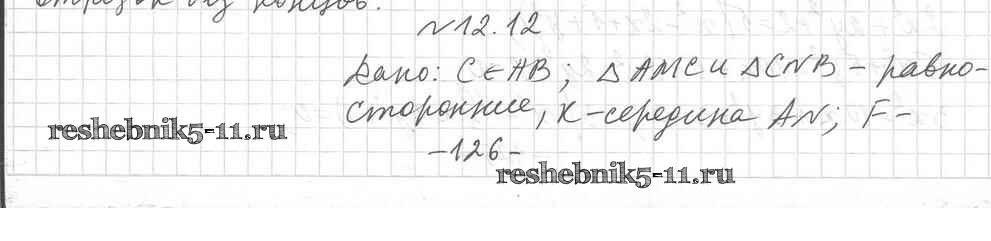 отрезок из концов.
№12.12
Дано: C∈AB; △AMC и △CNB – равно-
сторонние, K-середина AN; F-
reshebnik5-11.ru
-126-
reshebnik5-11.ru